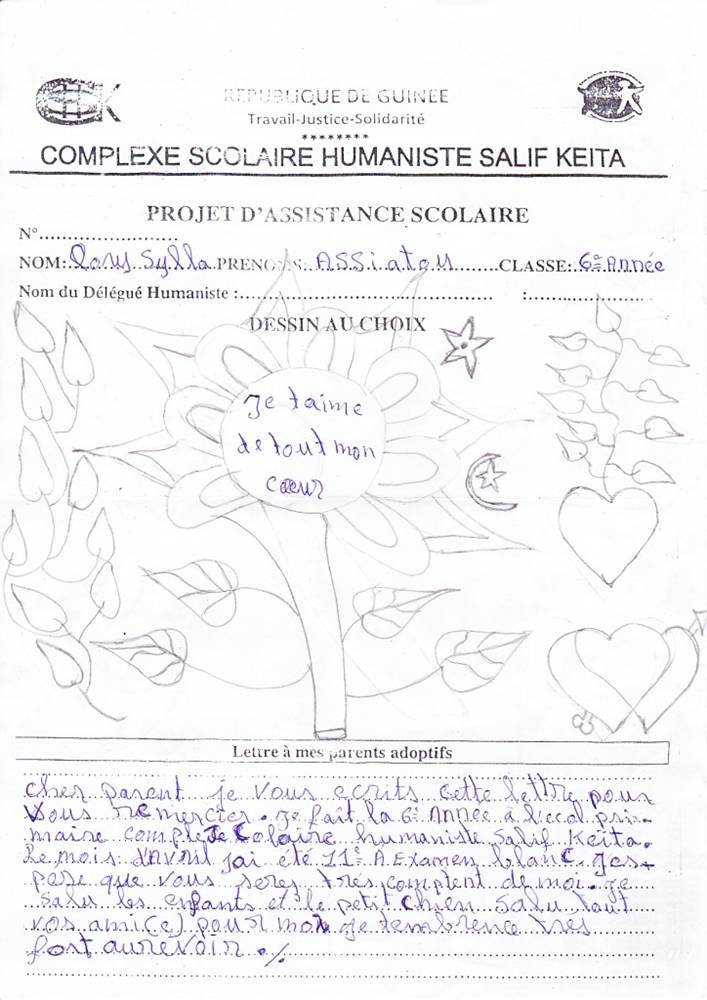 REPUBLIQUE DE GUINEE
Travail-Justice-Solidarité
********
COMPLEXE SCOLAIRE HUMANISTE SALIF KEITA
PROJET D'ASSISTANCE SCOLAIRE
N°........................
NOM: Sylla PRENOMS: ASSiatou CLASSE: 6e Année
Nom du Délégué Humaniste :............................................ :......................
DESSIN AU CHOIX
Je t'aime
de tout mon
cœur
Lettre à mes parents adoptifs
cher parent je vous ecrits cette lettre pour
vous remercier. je fait la 6e Année à l'ecol pri-
maire complexe colaire humaniste Salif Keita.
Le mois d'avril jai été 11e A Examen blanc. jes-
père que vous seres très complent de moi. je
salu les enfants et le petit chien salu tout
vos ami(e) pour moi je tembrence très
fort aurevoir ./.